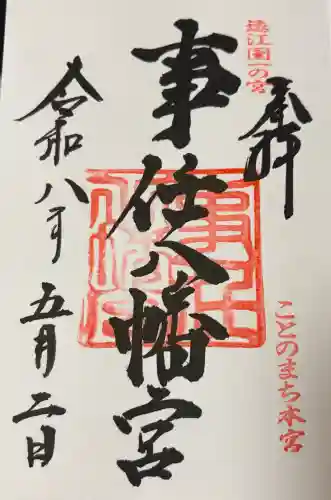 遠江国一の宮
奉拝
ことのまち本宮
事任八幡宮
令和八年五月二日